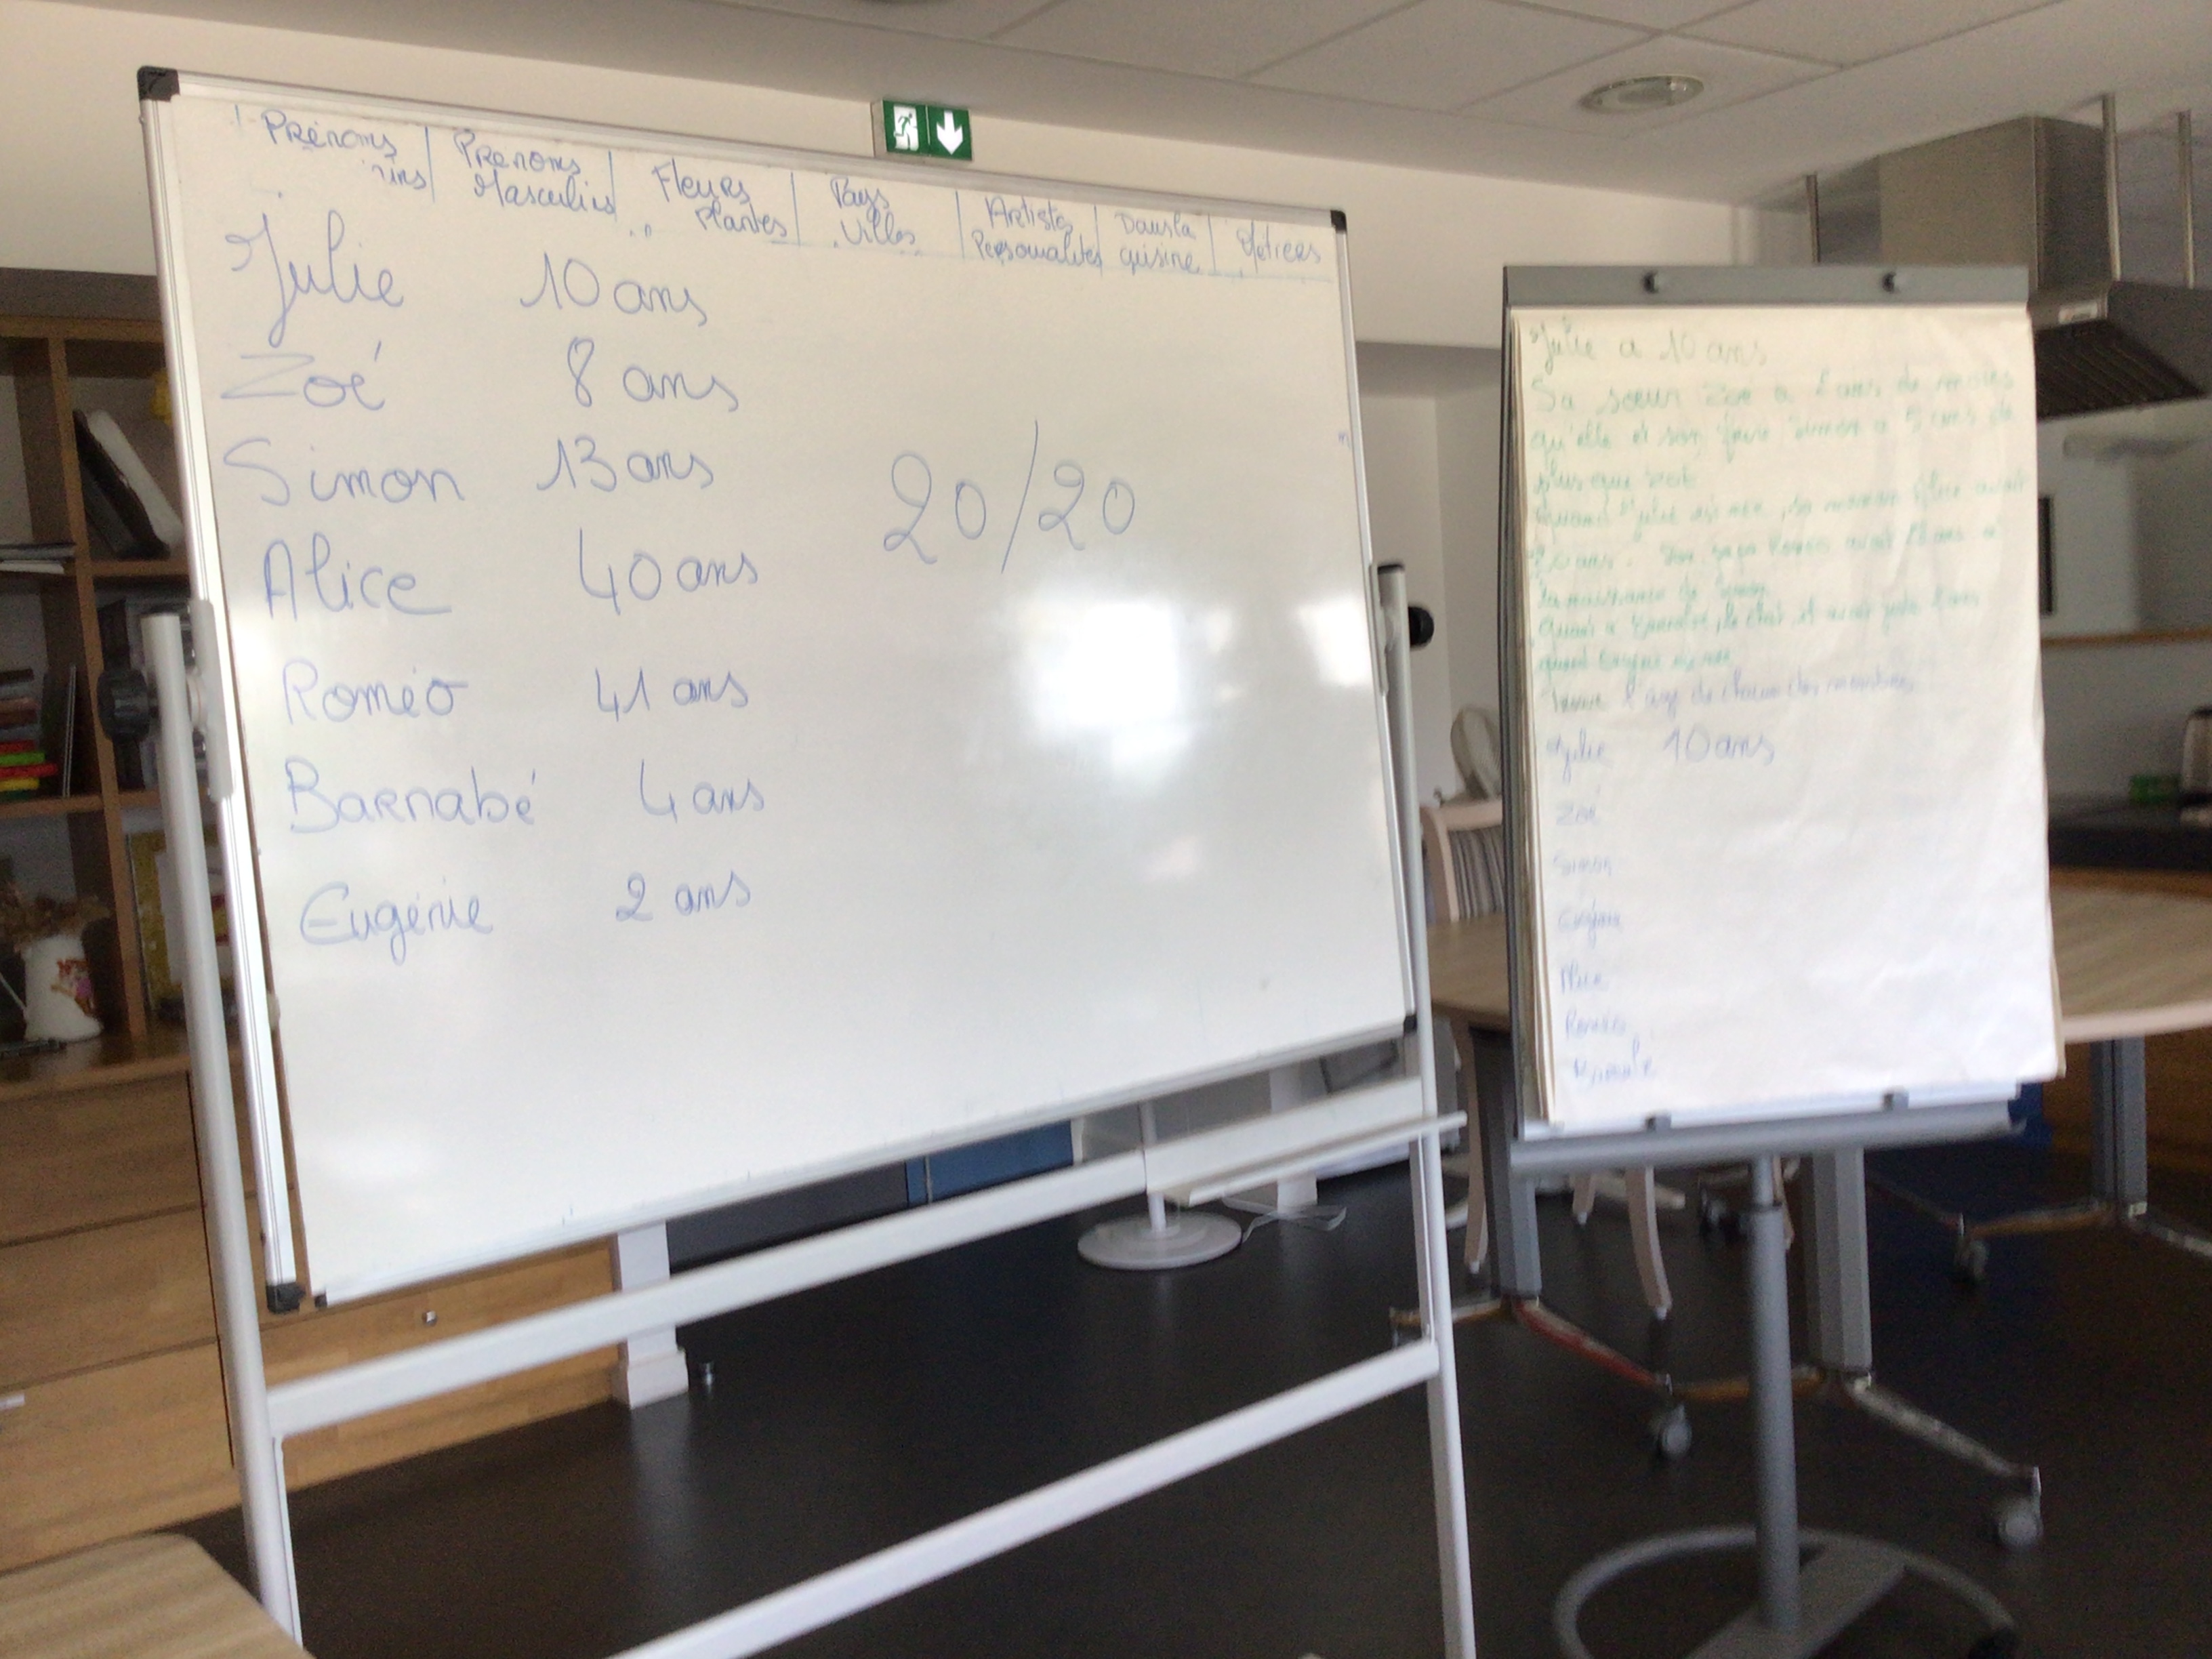 Prénoms | Prenoms | Fleurs | Pays | Artistes | Dans la | Métiers
Masculins | Plantes | Villes | Personnalités | cuisine
Julie 10 ans
Zoé 8 ans
Simon 13 ans
Alice 40 ans
Roméo 41 ans
Barnabé 4 ans
Eugénie 2 ans
20/20
Julie a 10 ans
Sa soeur Zoé a 2 ans de moins
qu'elle et son frère Simon a 5 ans de
plus que Zoé
Quand Julie est née, sa maman Alice avait
30 ans. Son papa Roméo avait 28 ans à
la naissance de Simon
Quant à Barnabé, le chat, il avait juste 2 ans
quand Eugénie est née
Trouve l'age de chacun des membres
Julie 10 ans
Zoé
Simon
Eugénie
Alice
Roméo
Barnabé